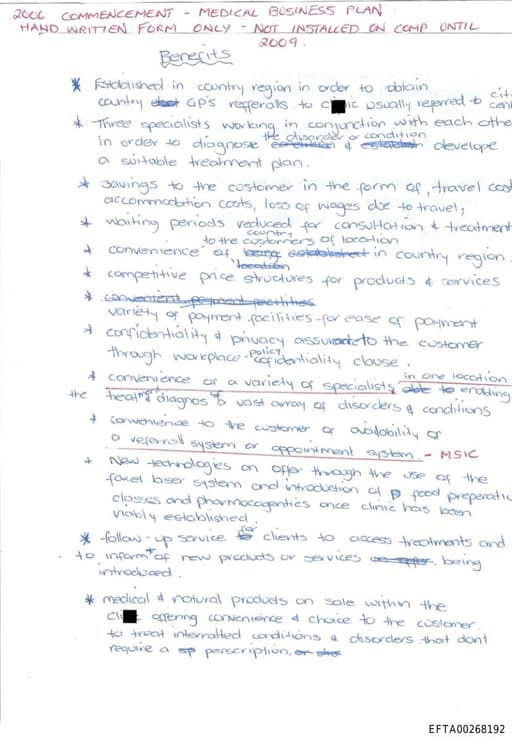 2006 COMMENCEMENT - MEDICAL BUSINESS PLAN
HAND WRITTEN FORM ONLY - NOT INSTALLED ON COMP UNTIL
2009.
Benefits
* Established in country region in order to obtain
country GP's refferalls to c nic usually referred to cit
cent
* Three specialists working in conjunction with each othe
the disorder or condition
in order to diagnose & develope
a suitable treatment plan.
* savings to the customer in the form of, travel cost
accommodation costs, loss of wages due to travel;
* waiting periods reduced for consultation & treatment
country
to the customers of location
* convenience of being established in country region
location
* competitive price structures for products & services
* convenient payment facilities
variety of payment facilities for ease of payment
* confidentiality & privacy assured to the customer
through workplace policy confidentiality clause.
* convenience of a variety of specialists in one location
able to enabling
the treatment diagnos vast array of disorders & conditions
* convenience to the customer of availability of
a referral system or appointment system. - MSIC
* New technologies on offer through the use of the
laser system and introduction of food preperatio
classes and once clinic has been
viably established.
* follow-up service for clients to access treatments and
to inform of new products or services being
introduced.
* medical & natural products on sale within the
Cli offering convenience & choice to the customer
to treat interralted conditions & disorders that dont
require a perscription.
EFTA00268192